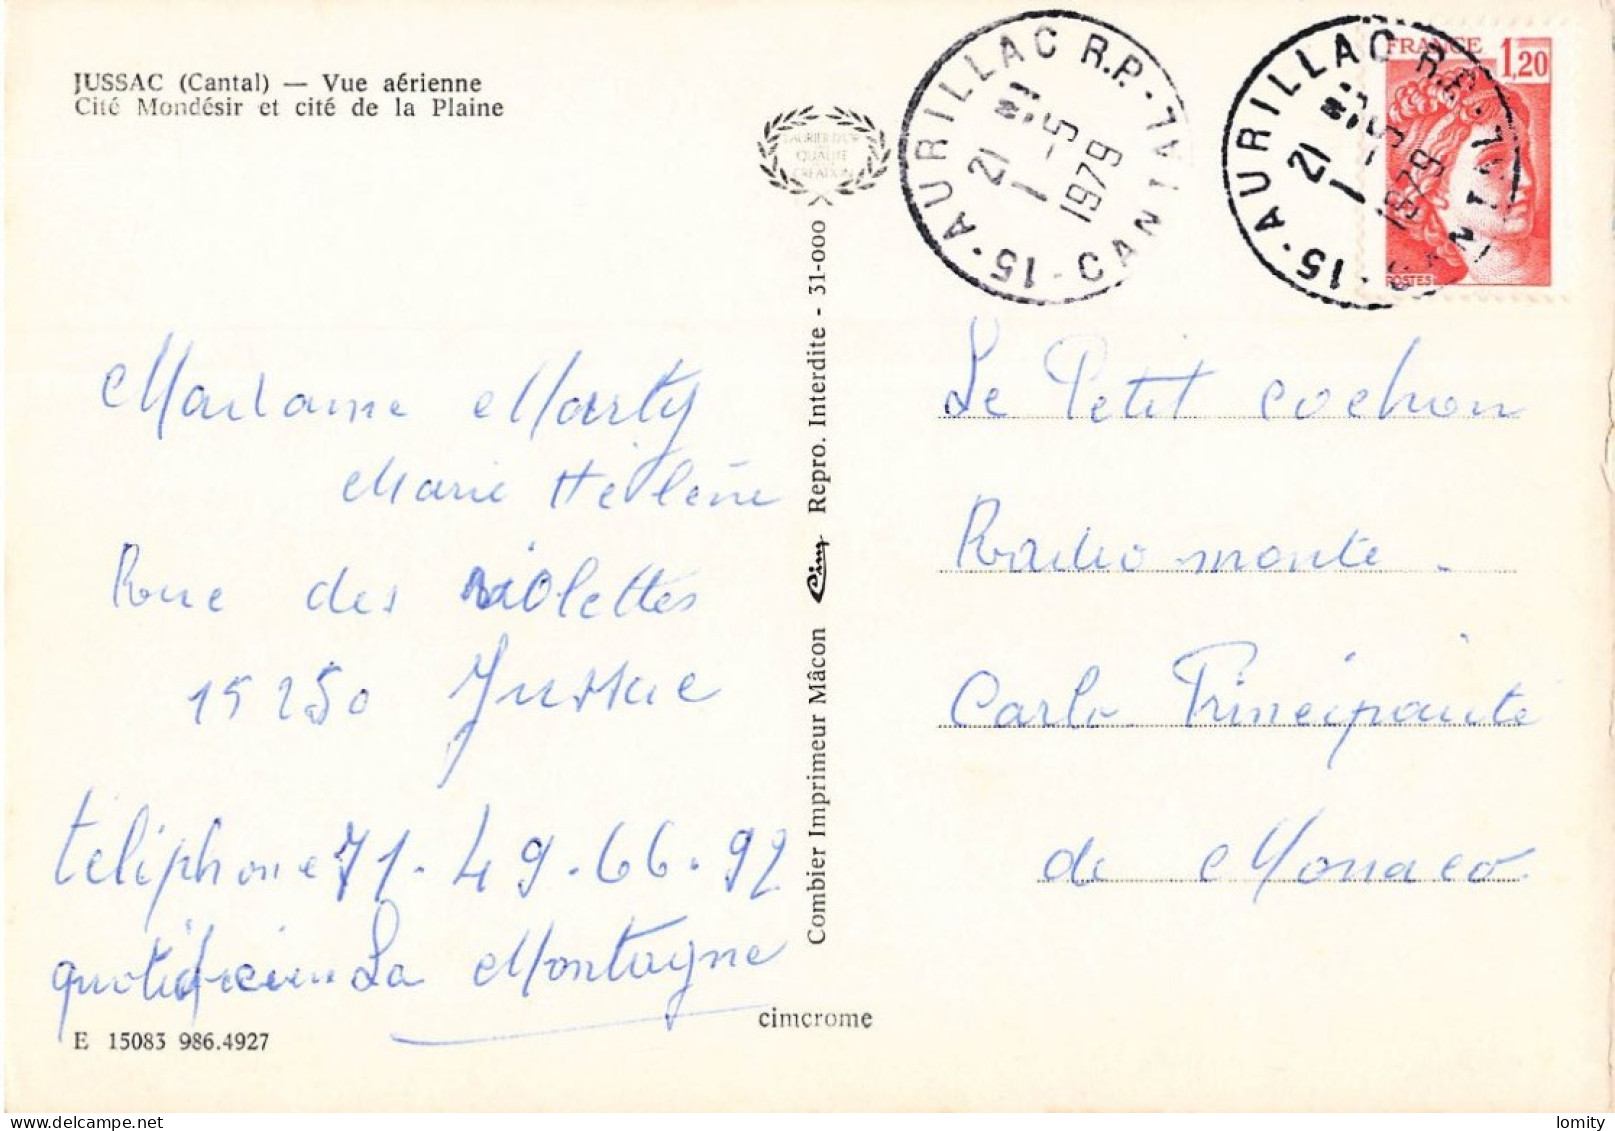 JUSSAC (Cantal) — Vue aérienne
Cité Mondésir et cité de la Plaine
LAURIER D'OR
QUALITÉ
CRÉATION
AURILLAC R.P. - 15 - CANTAL
21 H
1 - 5
1979
AURILLAC R.P. - 15 - CANTAL
21 H
1 - 5
1979
FRANCE 1,20
POSTES
Madame Marty
Marie Hélène
Rue des violettes
15250 Jussac
téliphone 71.49.66.92
quotidien La Montagne
E 15083 986.4927
Combier Imprimeur Mâcon Cim Repro. Interdite - 31-000
cimcrome
Le Petit cochon
Radio monte.
Carlo Principauté
de Monaco
lomity